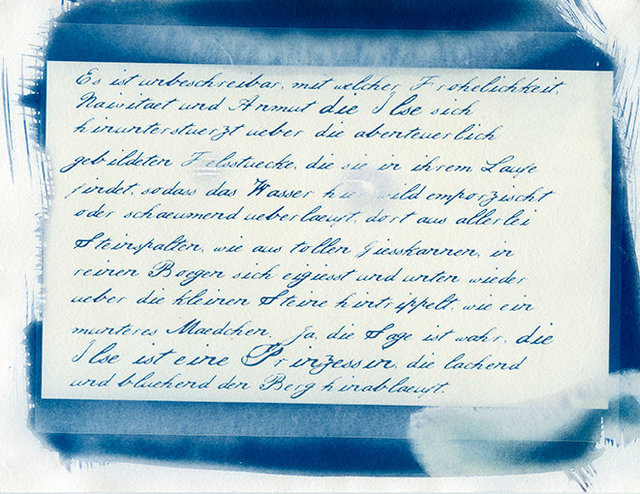 Es ist unbeschreibar, mit welcher Frohelichkeit,
Naivitaet und Anmut die Ilse sich
hinunterstuerzt ueber die abenteuerlich
gebildeten Felsstuecke, die sie in ihrem Laufe
findet, sodass das Wasser hier wild emporzischt
oder schaeumend ueberlaeuft, dort aus allerlei
Steinspalten, wie aus tollen Giesskannen, in
reinen Boegen sich ergiesst und unten wieder
ueber die kleinen Steine hintrippelt, wie ein
munteres Maedchen. Ja, die Sage ist wahr, die
Ilse ist eine Prinzessin, die lachend
und bluehend den Berg hinablaeuft.